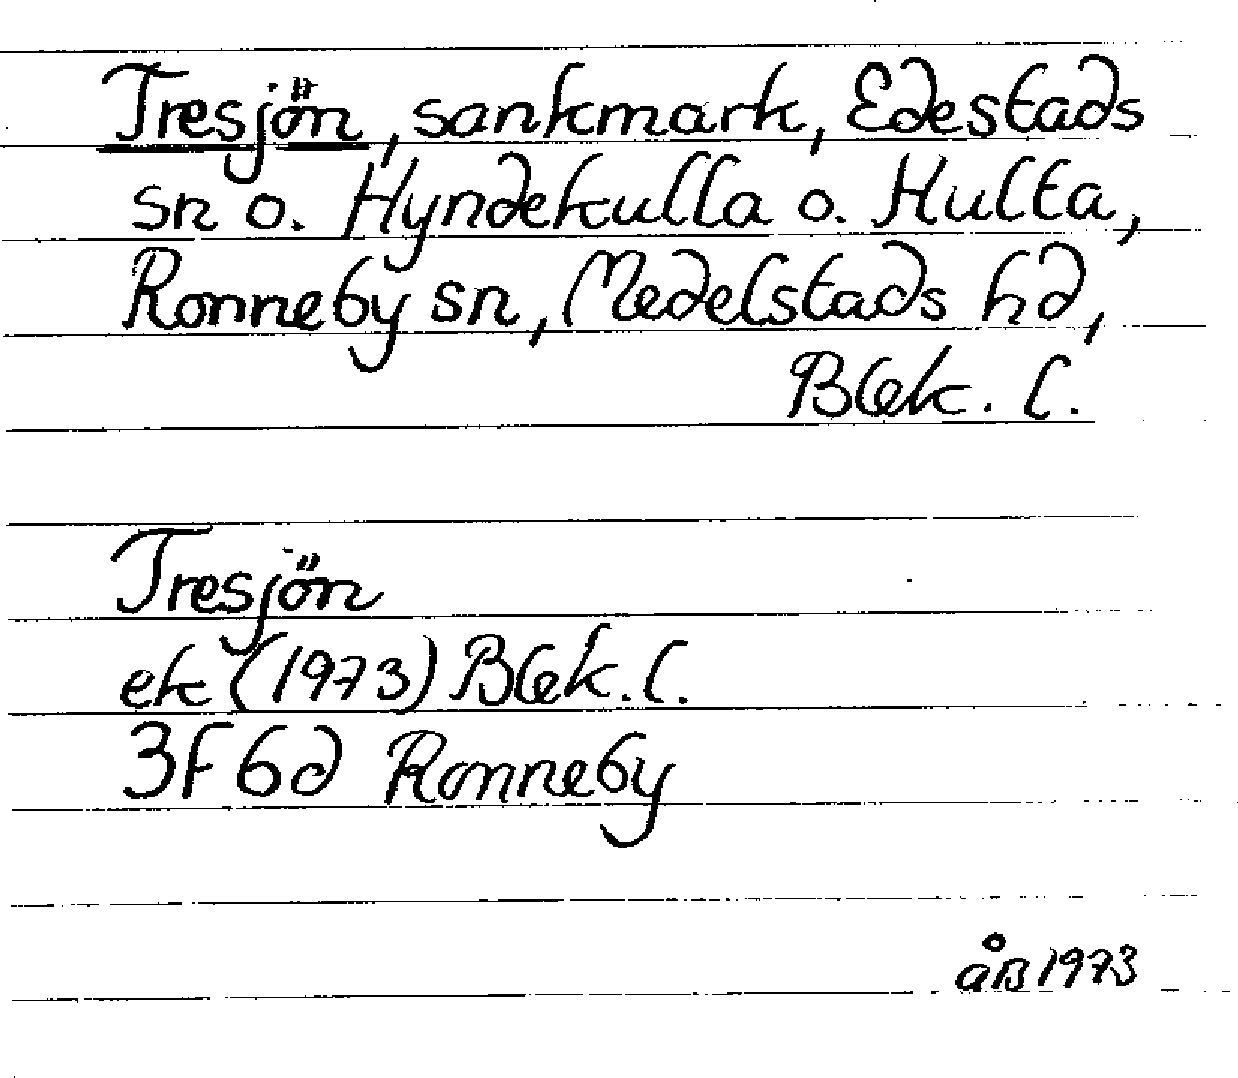 Tresjön, sankmark, Edestads
sn o. Hyndekulla o. Hulta,
Ronneby sn, Medelstads hd,
Blek. l.
Tresjön
ek (1973) Blek. l.
3F 6d Ronneby
åB 1973